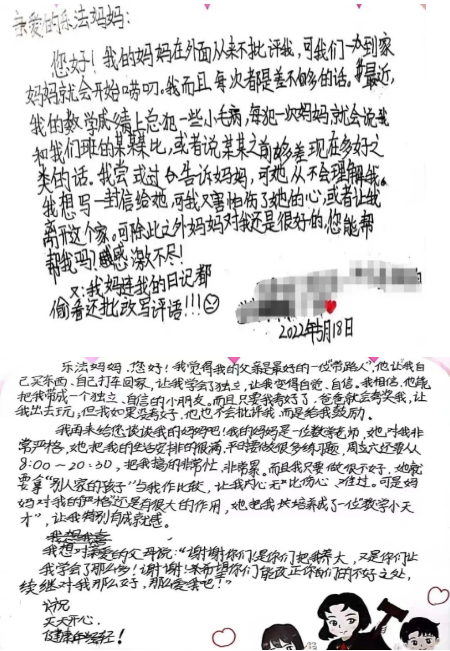 亲爱的乐法妈妈:
您好!我的妈妈在外面从来不批评我,可我们一办到家
妈妈就会开始唠叨。我而且每次都是差不多的话。最近,
我的数学成绩上总犯一些小毛病,每犯一次妈妈就会说我
和我们班的某某比,或者说某某之前多差现在多好之
类的话。我尝试过告诉妈妈,可她从不会理解我。
我想写一封信给她,可我又害怕伤了她的心,或者让我
离开这个家。可除此之外妈妈对我还是很好的,您能帮
帮我吗?感激不尽!
又:我妈连我的日记都
偷看还批改写评语!!!
2022年5月18日
乐法妈妈,您好!我觉得我的父亲是最好的一位“带路人”,他让我自
己买东西,自己打车回家,让我学会了独立,让我变得自觉、自信。我相信,他能
把我带成一个独立、自信的小朋友。而且只要我考好了,爸爸就会夸奖我,让
我出去玩;但我如果没考好,他也不会批评我,而是给我鼓励。
我再来给您谈谈我的妈妈吧!我的妈妈是一位数学老师,她对我非
常严格,她把我的生活安排的很满,平日要做很多练习题,周六还要从
8:00~20:30,把我搞的非常忙,非常累。而且我只要做得不好,她就
要拿“别人家的孩子”与我作比较,让我内心无比伤心、难过。可是妈
妈对我的严格还是有很大的作用,她把我培养成了一位“数学小天
才”,让我特别有成就感。
我想对亲爱的父母说:“谢谢你们!是你们把我养大,又是你们让
我学会了那么多!谢谢!希望你们能改正你们的不好之处,
继续对我那么好,那么爱我吧!”
祝
天天开心,
健康年轻!